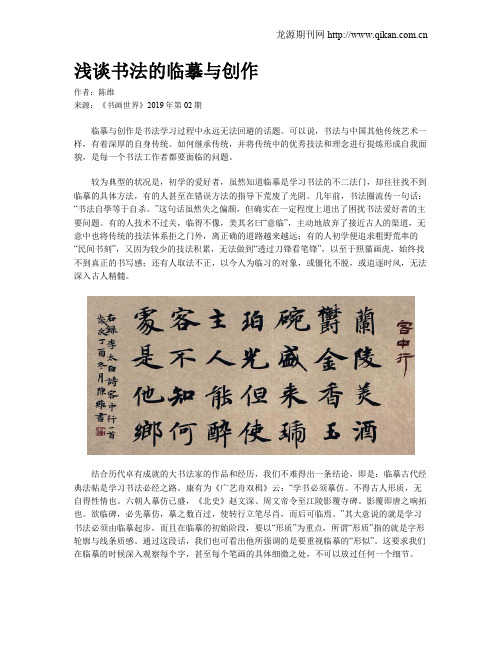 龙源期刊网 http://www.qikan.com.cn
浅谈书法的临摹与创作
作者：陈维
来源：《书画世界》2019年第02期
临摹与创作是书法学习过程中永远无法回避的话题。可以说，书法与中国其他传统艺术一
样，有着深厚的自身传统。如何继承传统，并将传统中的优秀技法和理念进行提炼形成自我面
貌，是每一个书法工作者都要面临的问题。
较为典型的状况是，初学的爱好者，虽然知道临摹是学习书法的不二法门，却往往找不到
临摹的具体方法，有的人甚至在错误方法的指导下荒废了光阴。几年前，书法圈流传一句话：
“书法自學等于自杀。”这句话虽然失之偏颇，但确实在一定程度上道出了困扰书法爱好者的主
要问题。有的人技术不过关，临得不像，美其名曰“意临”，主动地放弃了接近古人的渠道，无
意中也将传统的技法体系拒之门外，离正确的道路越来越远；有的人初学便追求粗野荒率的
“民间书刻”，又因为较少的技法积累，无法做到“透过刀锋看笔锋”，以至于照猫画虎，始终找
不到真正的书写感；还有人取法不正，以今人为临习的对象，或僵化不脱，或追逐时风，无法
深入古人精髓。
客中行
蘭陵美酒
鬱金香玉
碗盛来琥
珀光但使
主人能醉
客不知何
處是他鄉
右録李太白詩客中行一首
歲次丁酉冬月陳維書
结合历代卓有成就的大书法家的作品和经历，我们不难得出一条结论，即是：临摹古代经
典法帖是学习书法必经之路。康有为《广艺舟双楫》云：“学书必须摹仿。不得古人形质，无
自得性情也。六朝人摹仿已盛，《北史》赵文深、周文帝令至江陵影覆寺碑。影覆即唐之响拓
也。欲临碑，必先摹仿，摹之数百过，使转行立笔尽肖，而后可临焉。”其大意说的就是学习
书法必须由临摹起步，而且在临摹的初始阶段，要以“形质”为重点，所谓“形质”指的就是字形
轮廓与线条质感。通过这段话，我们也可看出他所强调的是要重视临摹的“形似”。这要求我们
在临摹的时候深入观察每个字，甚至每个笔画的具体细微之处，不可以放过任何一个细节。